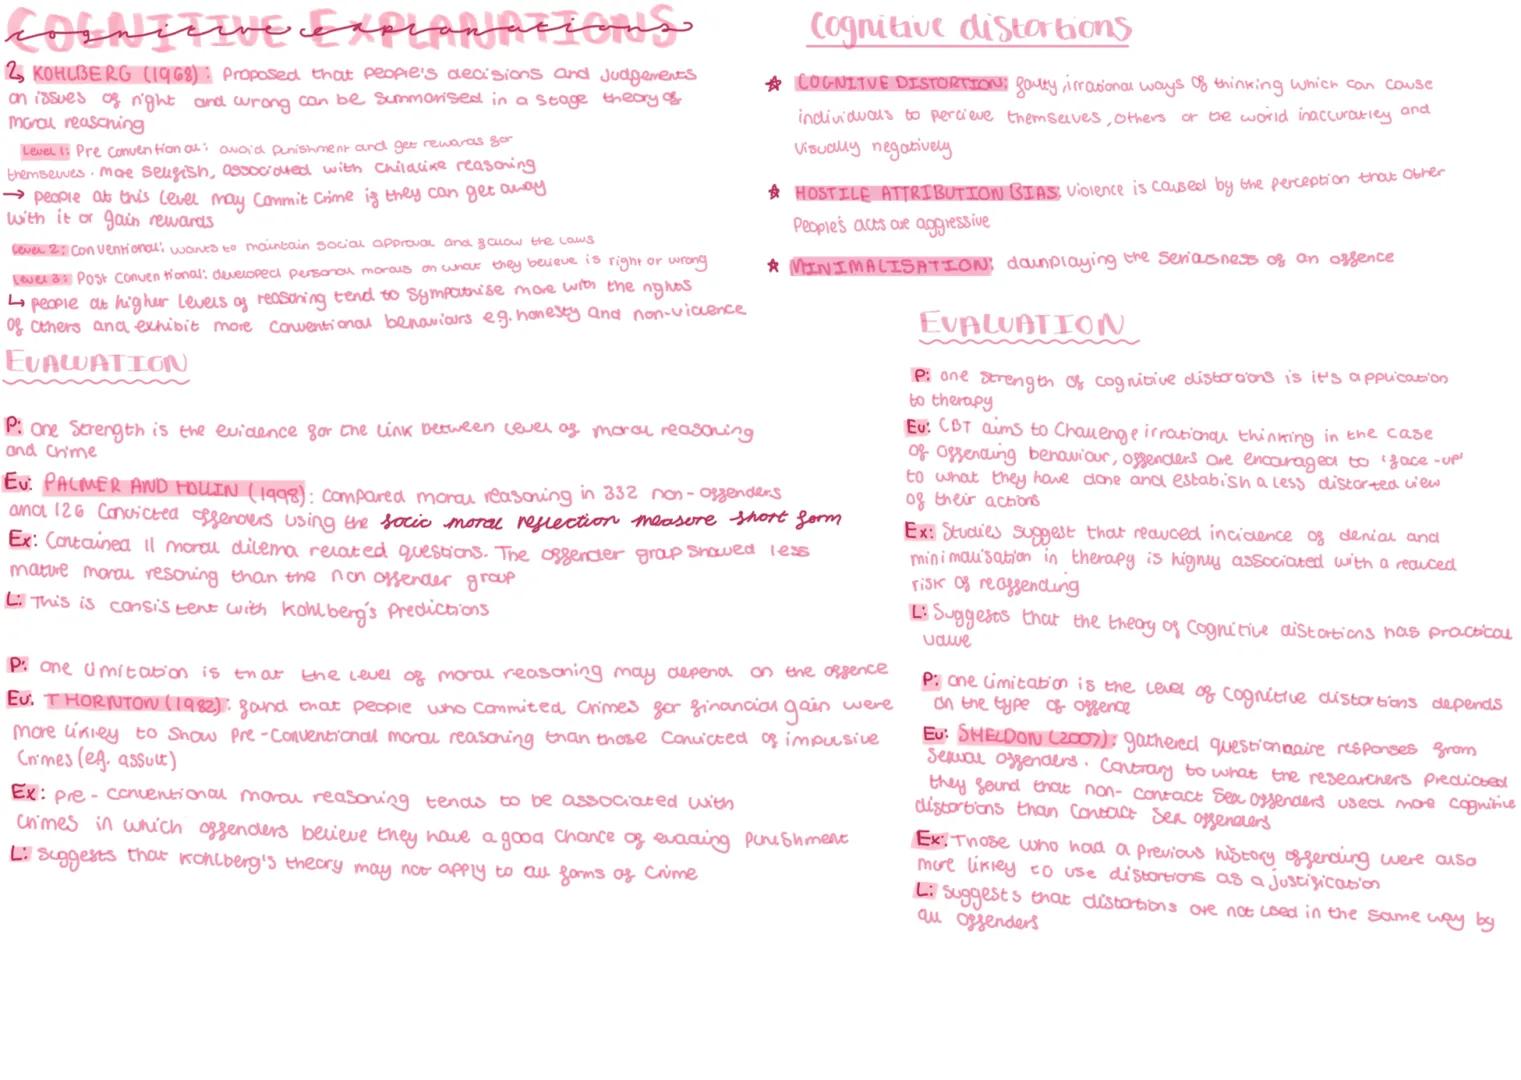 COGNITIVE EXPLANATIONS
cognitive explanations
KOHLBERG (1968): Proposed that people's decisions and Judgements
on issues of right and wrong can be summarised in a stage theory of
moral reasoning
Level 1: Pre conventional: avoid punishment and get rewards for
themselves. More selfish, associated with childlike reasoning
→ people at this level may commit crime if they can get away
with it or gain rewards
Level 2: Conventional: wants to maintain social approval and follow the laws
Level 3: Post Conventional: developed personal morals on what they believe is right or wrong
↳ people at higher levels of reasoning tend to sympathise more with the rights
of others and exhibit more conventional behaviours e.g. honesty and non-violence
EVALUATION
P: one strength is the evidence for the link between level of moral reasoning
and crime
Ev: PALMER AND HOLLIN (1998): compared moral reasoning in 332 non-offenders
and 126 convicted offenders using the socio moral reflection measure short form
Ex: Contained 11 moral dilema related questions. The offender group showed less
mature moral resoning than the non offender group
L: This is consistent with Kohlberg's Predictions
P: one limitation is that the level of moral reasoning may depend on the offence
Ev: THORNTON (1982): found that people who commited crimes for financial gain were
more likley to show pre-conventional moral reasoning than those convicted of impulsive
crimes (e.g. assult)
Ex: pre-conventional moral reasoning tends to be associated with
crimes in which offenders believe they have a good chance of evading punishment
L: Suggests that Kohlberg's theory may not apply to all forms of crime
Cognitive distortions
☆ COGNITVE DISTORTION: faulty, irrational ways of thinking which can cause
individuals to percieve themselves, others or the world inaccuratley and
visually negatively
☆ HOSTILE ATTRIBUTION BIAS: violence is caused by the perception that other
People's acts are aggressive
☆ MINIMALISATION: downplaying the seriousness of an offence
EVALUATION
P: one strength of cognitive distortions is it's application
to therapy
Ev: CBT aims to challenge irrational thinking in the case
of offending behaviour, offenders are encouraged to 'face-up'
to what they have done and estabish a less distorted view
of their actions
Ex: Studies suggest that reduced incidence of denial and
minimalisation in therapy is highly associated with a reduced
risk of reoffending
L: Suggests that the theory of cognitive distortions has practical
value
P: one limitation is the level of cognitive distortions depends
on the type of offence
Ev: SHELDON (2007): gathered questionnaire responses from
sexual offenders. Contrary to what the researchers predicted
they found that non-contact sex offenders used more cognitive
distortions than contact sex offenders
Ex: Those who had a previous history offending were also
more likley to use distortions as a justification
L: suggests that distortions are not used in the same way by
all offenders